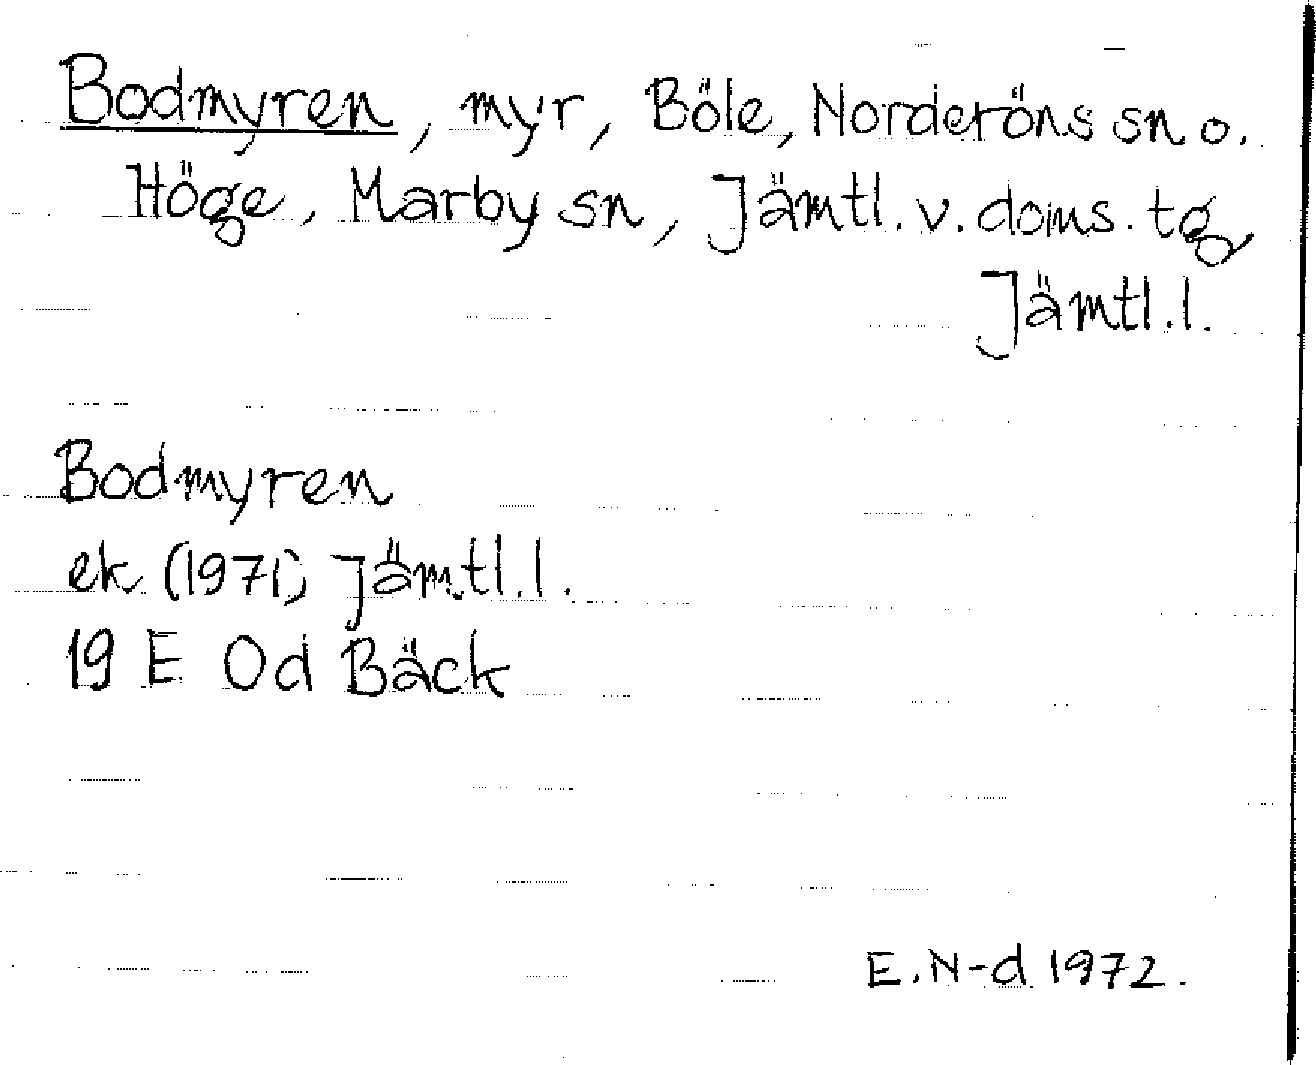 Bodmyren, myr, Böle, Norderöns sn o.
Höge, Marby sn, Jämtl. v. doms. tg,
Jämtl. l.
Bodmyren
ek (1971) Jämtl. l.
19 E Od Bäck
E. N-d 1972.